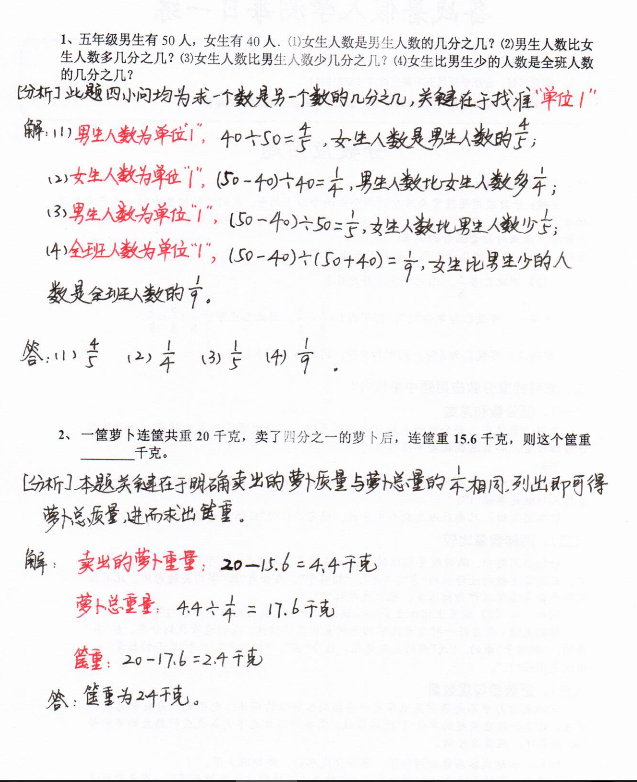 1、五年级男生有 50 人，女生有 40 人．⑴女生人数是男生人数的几分之几？⑵男生人数比女
生人数多几分之几？⑶女生人数比男生人数少几分之几？⑷女生比男生少的人数是全班人数
的几分之几？
[分析] 此题四小问均为求一个数是另一个数的几分之几，关键在于找准“单位1”
解：(1) 男生人数为单位“1”，40÷50=4/5，女生人数是男生人数的4/5；
(2) 女生人数为单位“1”，(50-40)÷40=1/4，男生人数比女生人数多1/4；
(3) 男生人数为单位“1”，(50-40)÷50=1/5，女生人数比男生人数少1/5；
(4) 全班人数为单位“1”，(50-40)÷(50+40)=1/9，女生比男生少的人
数是全班人数的1/9。
答：(1) 4/5 (2) 1/4 (3) 1/5 (4) 1/9 。
2、 一筐萝卜连筐共重 20 千克，卖了四分之一的萝卜后，连筐重 15.6 千克，则这个筐重
________千克。
[分析] 本题关键在于明确卖出的萝卜质量与萝卜总量的1/4相同，列出即可得
萝卜总质量，进而求出筐重。
解： 卖出的萝卜重量：20-15.6=4.4千克
萝卜总重量：4.4÷1/4=17.6千克
筐重：20-17.6=2.4千克
答：筐重为2.4千克。